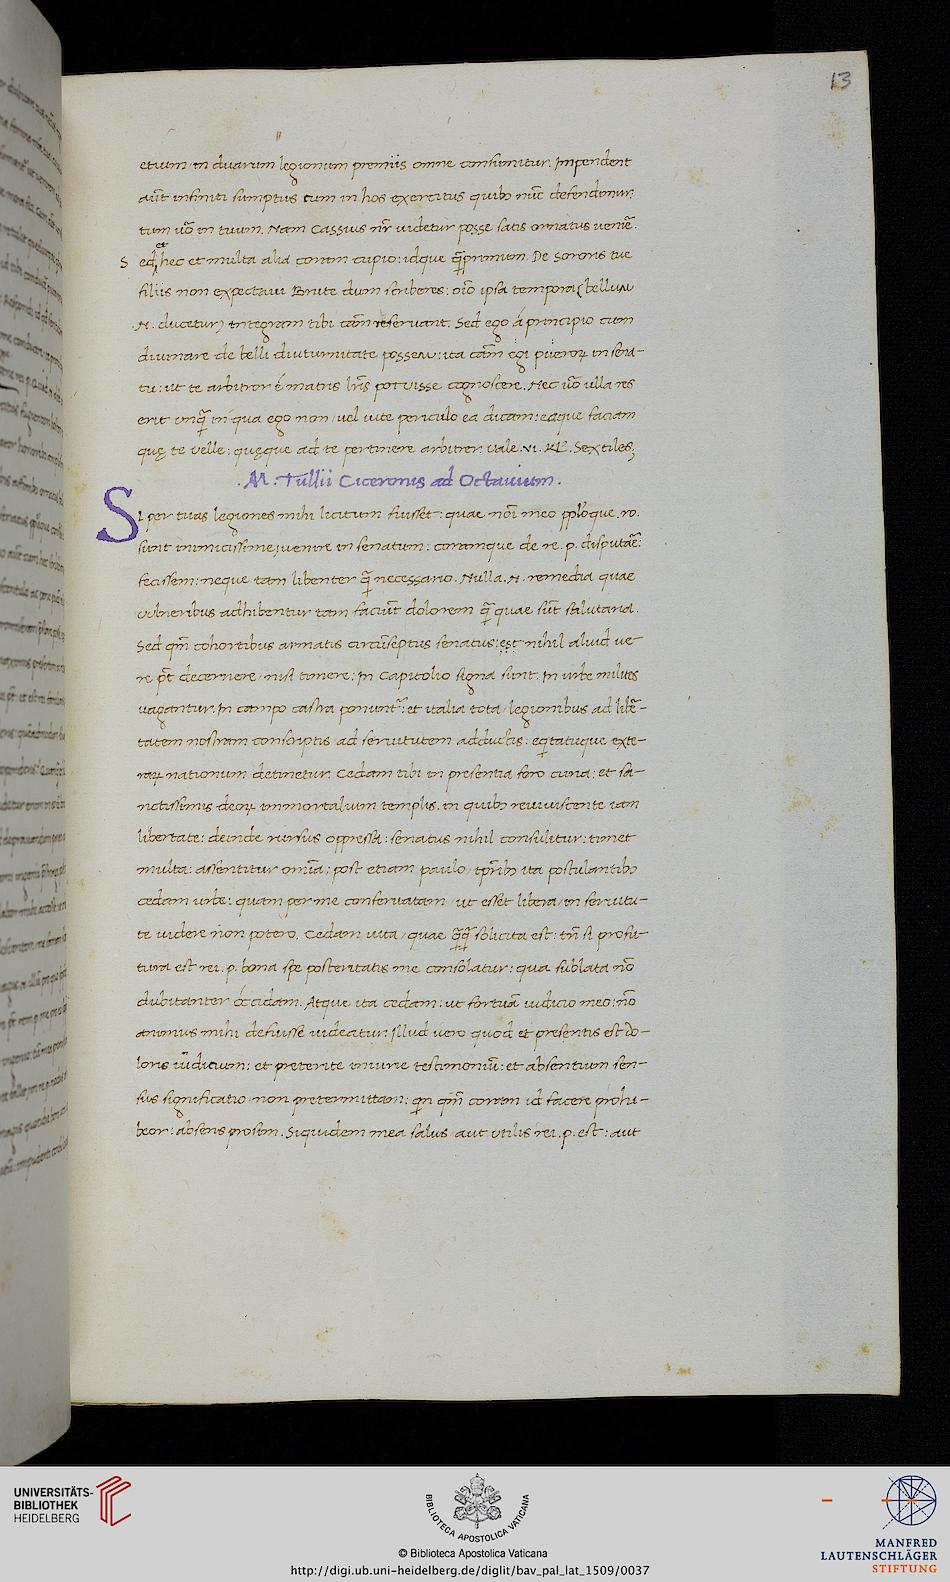 13
etiam in duarum legionum premiis omne consumitur. Impendent
aut̄ infiniti sumptus cum in hos exercitus quibꝰ nūc defendimur:
tum uō in tuum. Nam Cassius nr̄ uidetur posse satis ornatus ueniē.
S edˏ et hec et multa alia coram cupio: idque q̄primum. De Sororis tue
filiis non expectaui Brute dum scriberes: oīo ipsa tempora (bellum
.N. ducetur) integram tibi cām reseruant. Sed ego á principio cum
diuinare de belli diuturnitate possem: ita cām ėgi pueroꝝ in sena-
tu: ut te arbitror é matris lr̄is potuisse cognoscere. Nec uō ulla res
erit unq̄ in qua ego non uel uite periculo ea dicam: eaque faciam
quę te uelle: quęque ad te pertinere arbitrer. Vale .vi. Kl̄. Sextiles;
.M. Tullii Ciceronis ad Octauium.
SI per tuas legiones mihi licitum fuisset: quae noī meo ppl̄oque .ro.
sunt inimicissime; uenire in senatum: coramque de re .p. disputāē:
fecissem: neque tam libenter q̄ necessario. Nulla .N. remedia quae
uulneribus adhibentur tam faciūt dolorem q̄ quae sūt salutaria.
Sed qm̄ cohortibus armatis circūseptus senatus: est nihil aliud ue-
re pt̄ decernere nisi timere: In Capitolio signa sunt: In urbe milites
uagantur: In campo castra ponunt̄: et italia tota legionibus ad libē-
tatem nostram conscriptis ad seruitutem adductis: eq̄tatuque exte-
raꝝ nationum detinetur. Cedam tibi in presentia foro curia: et sa-
nctissimis deoꝝ immortalium templis. in quibꝰ reuiuiscente iam
libertate: deinde rursus oppressa: senatus nihil consulitur: timet
multa: assentitur omīa; post etiam paulo tp̄ribꝰ ita postulantibꝰ
cedam urbe: quam per me conseruatam ut esset libera in seruitu-
te uidere non potero. Cedam uita quae q̄q̄ solicita est: tn̄ si profu-
tura est rei .p. bona spe posteritatis me consolatur: qua sublata nō
dubitanter occidam. Atque ita cedam: ut fortuā iudicio meo: nō
animus mihi defuisse uideatur. Illud uero quod et presentis est do-
loris iūdicium: et preterite iniurie testimoniū: et absentium sen-
sus significatio non pretermittam: qn̄ qm̄ coram id facere prohi-
beor: absens prosim. Siquidem mea salus aut utilis rei .p. est: aut
UNIVERSITÄTS-
BIBLIOTHEK
HEIDELBERG
BIBLIOTECA APOSTOLICA VATICANA
© Biblioteca Apostolica Vaticana
http://digi.ub.uni-heidelberg.de/diglit/bav_pal_lat_1509/0037
MANFRED
LAUTENSCHLÄGER
STIFTUNG